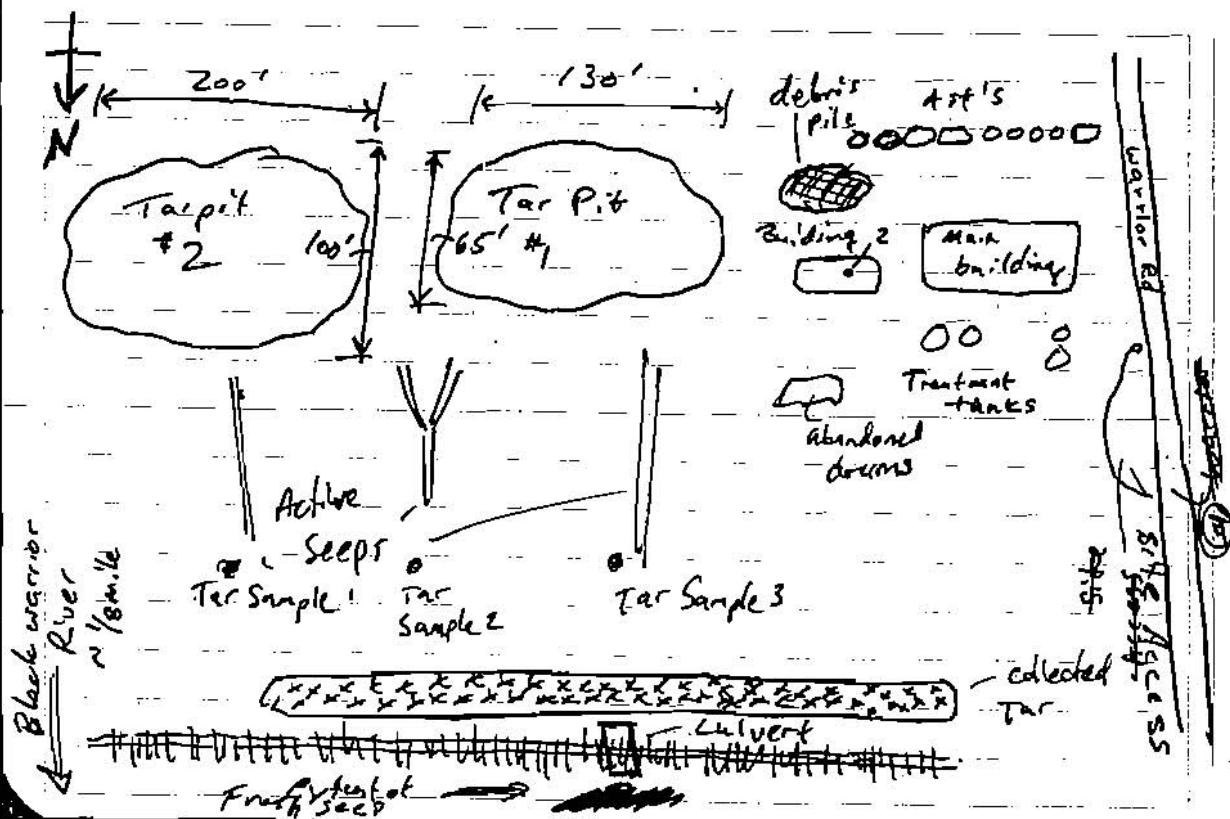 200'
130'
debris
pile
Ast's
N
Tarpit
#2
100'
Tar Pit
65' #1
Building 2
Main
building
Warrior Rd
Treatment
tanks
abandoned
drums
Active
Seeps
Tar Sample 1
Tar
Sample 2
Tar Sample 3
Black warrior
River
~ 1/8 mile
Site Access
collected
Tar
Culvert
extent of
seep